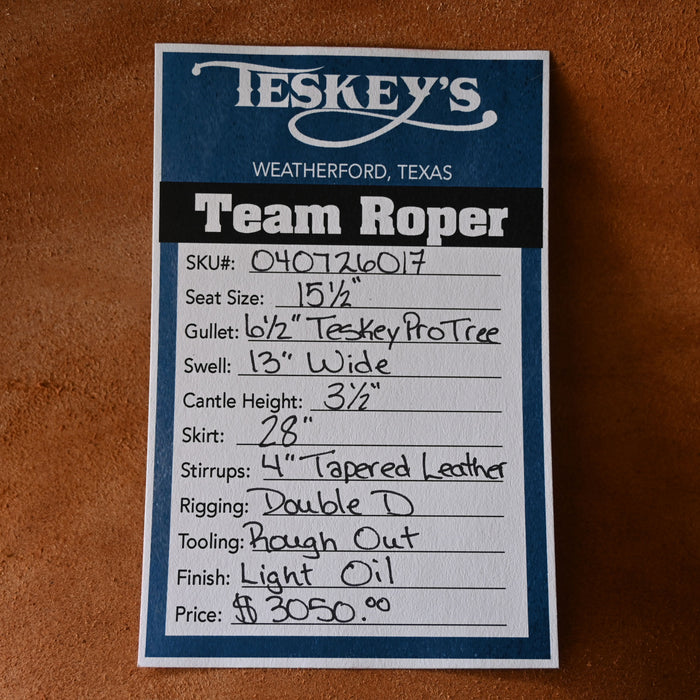 TESKEY'S
WEATHERFORD, TEXAS
Team Roper
SKU#: 040726017
Seat Size: 15½"
Gullet: 6½" Teskey Pro Tree
Swell: 13" Wide
Cantle Height: 3½"
Skirt: 28"
Stirrups: 4" Tapered Leather
Rigging: Double D
Tooling: Rough Out
Finish: Light Oil
Price: $3050.00